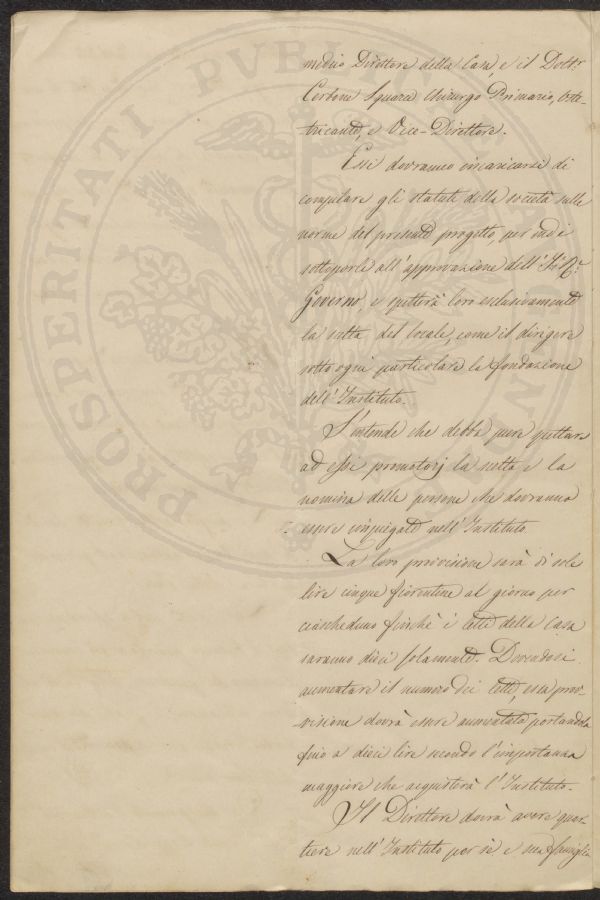 medico Direttore della Casa, e il Dott.r
Cerbone Squarci Chirurgo Primario, Oste-
tricante, e Vice-Direttore.
Essi dovranno incaricarsi di
compilare gli statuti della società sulle
norme del presente progetto per indi
sottoporle all'approvazione dell'I. e R.
Governo, e spetterà loro esclusivamente
la scelta del locale, come il dirigere
sotto ogni particolare la fondazione
dell'Instituto.
S'intende che debba pure spettare
ad essi promotorj la scelta e la
nomina delle persone che dovranno
essere impiegate nell'Instituto.
La loro provisione sarà di sole
lire cinque fiorentine al giorno per
ciascheduno finchè i letti della Casa
saranno dieci solamente. Dovendosi
aumentare il numero dei letti, essa prov-
visione dovrà essere aumentata portandola
fino a dieci lire secondo l'importanza
maggiore che acquisterà l'Instituto.
Il Direttore dovrà avere quar-
tiere nell'Instituto per sè e sua famiglia
PROSPERITATI PUBLICAE